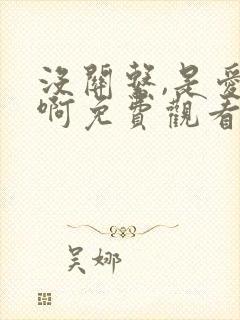 沒關繫,是愛
啊免費觀看
吴娜